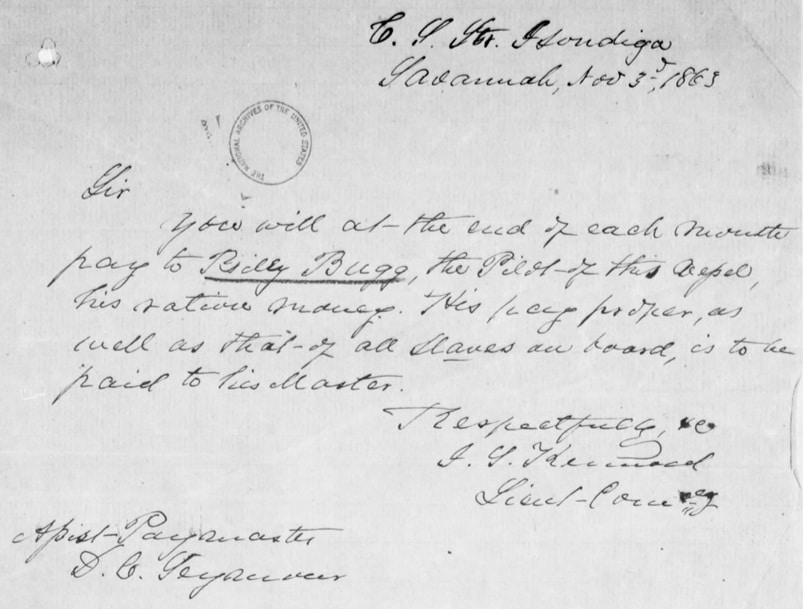 C. S. Str. Isondiga
Savannah, Nov 3d, 1863
THE NATIONAL ARCHIVES OF THE UNITED STATES
Sir
You will at the end of each month
pay to Billy Bugg, the Pilot of this Vessel,
his ration money. His pay proper, as
well as that of all slaves on board, is to be
paid to his Master.
Respectfully, &c
J. S. Kennard
Lieut Comdg
Assist Paymaster
D. C. Seymour